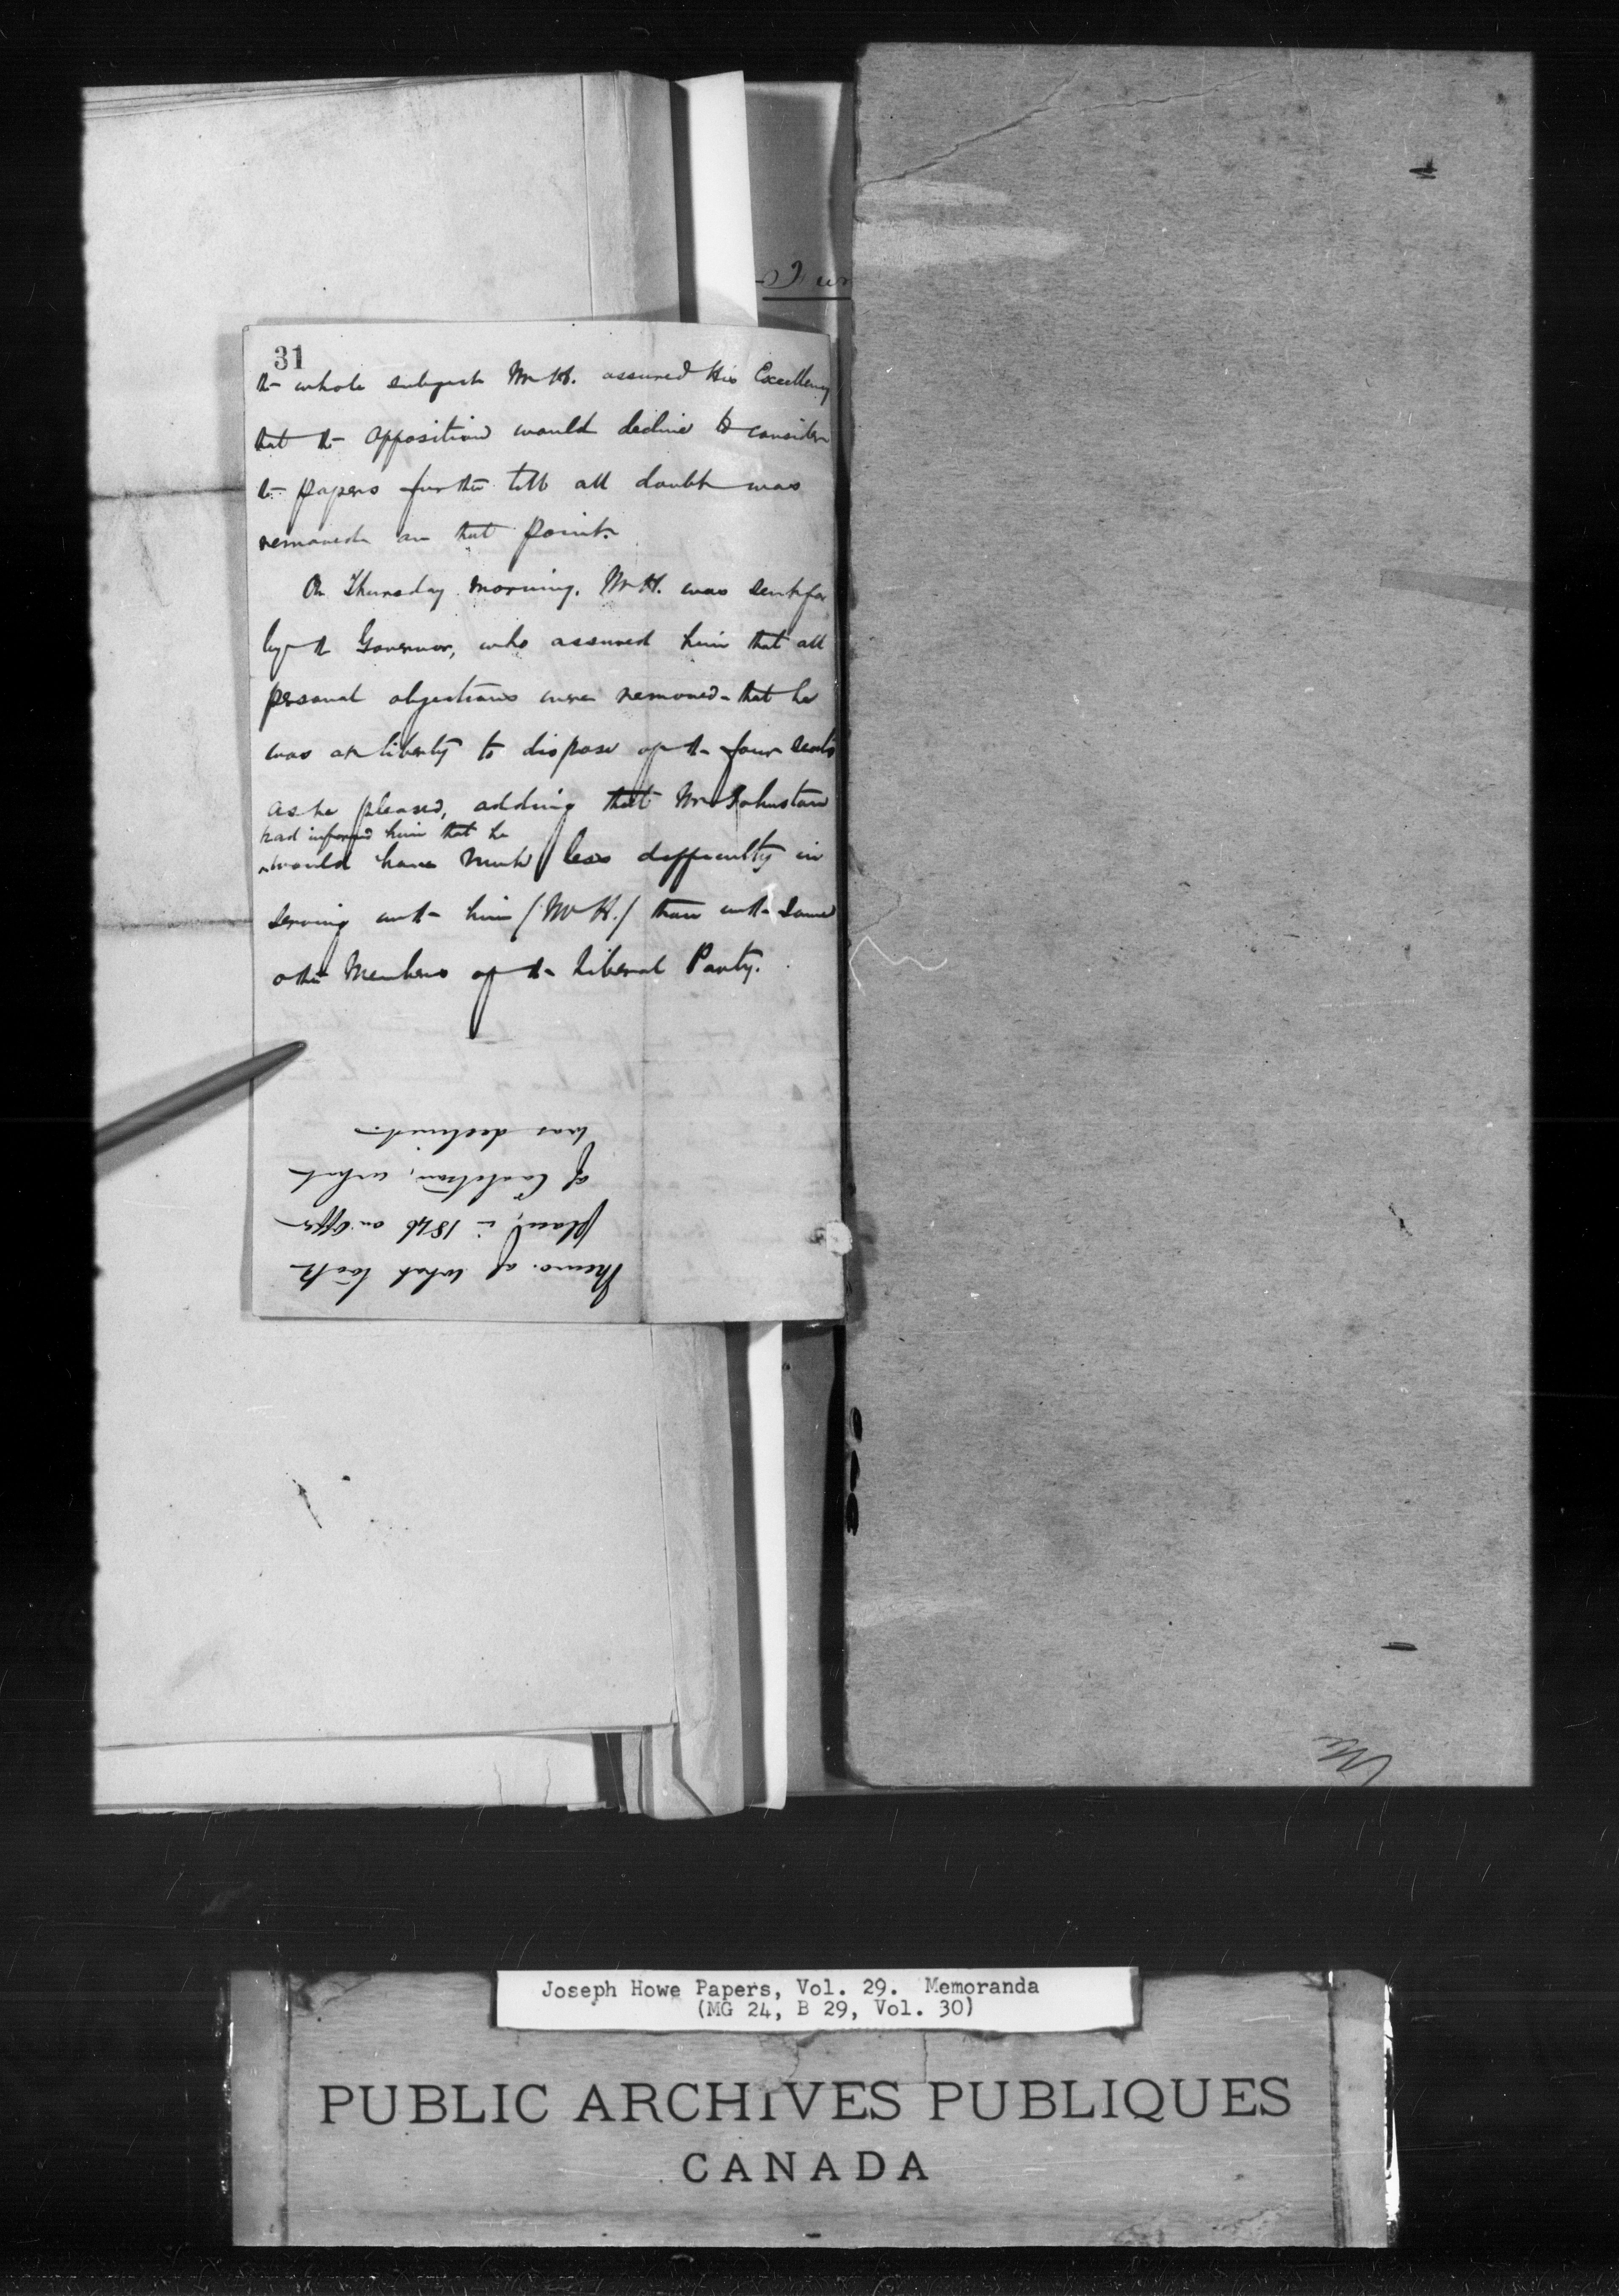 31
the whole subject Mr H. assured His Excellency
that the Opposition would decline to consider
the papers further till all doubt was
removed on that point.
On Thursday morning, Mr H. was sent for
by the Governor, who assured him that all
personal objections were removed - that he
was at liberty to dispose of the four seats
as he pleased, adding that Mr Johnston
had informed him that he
would have much less difficulty in
serving with him (Mr H.) than with some
other Members of the Liberal Party.
Memo. of what took
place, in 1846 an offer
of Coalition, which
was declined.
Joseph Howe Papers, Vol. 29. Memoranda
(MG 24, B 29, Vol. 30)
PUBLIC ARCHIVES PUBLIQUES
CANADA